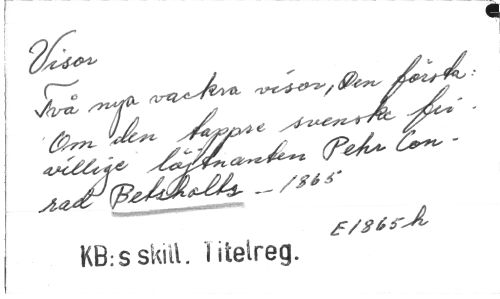 Visor
Två nya vackra visor, Den första:
Om den tappre svenske fri-
villige löjtnanten Pehr Con-
rad Betsholts – 1865
E1865h
KB:s skill. Titelreg.